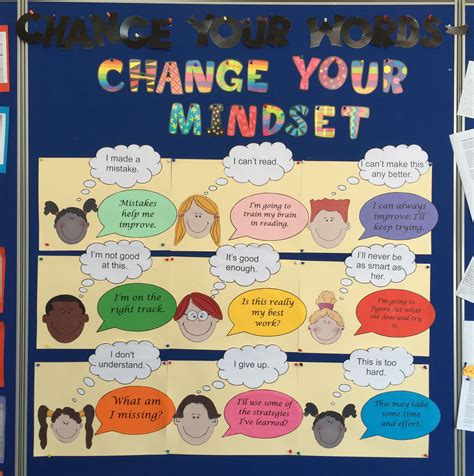 CHANGE YOUR WORDS
CHANGE YOUR
MINDSET
I made a
mistake.
Mistakes
help me
improve.
I can't read.
I'm going to
train my brain
in reading.
I can't make this
any better.
I can always
improve: I'll
keep trying.
I'm not good
at this.
I'm on the
right track.
It's good
enough.
Is this really
my best
work?
I'll never be
as smart as
her.
I'm going to
figure out what
she does and try
it.
I don't
understand.
What am
I missing?
I give up.
I'll use some of
the strategies
I've learned?
This is too
hard.
This may take
some time
and effort.